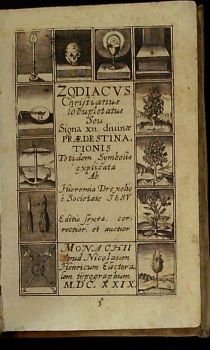 ZODIACVS
Christianus
locupletatus
Seu
Signa XII. diuinæ
PRÆDESTINA-
TIONIS
Totidem Symbolis
explicata
Ab
Hieremia Drexelio
è Societate IESV
Editio sexta, cor-
rectior, et auctior
MONACHII
Apud Nicolaum
Henricum Elector a-
lem typographum
M.DC.XXIX.